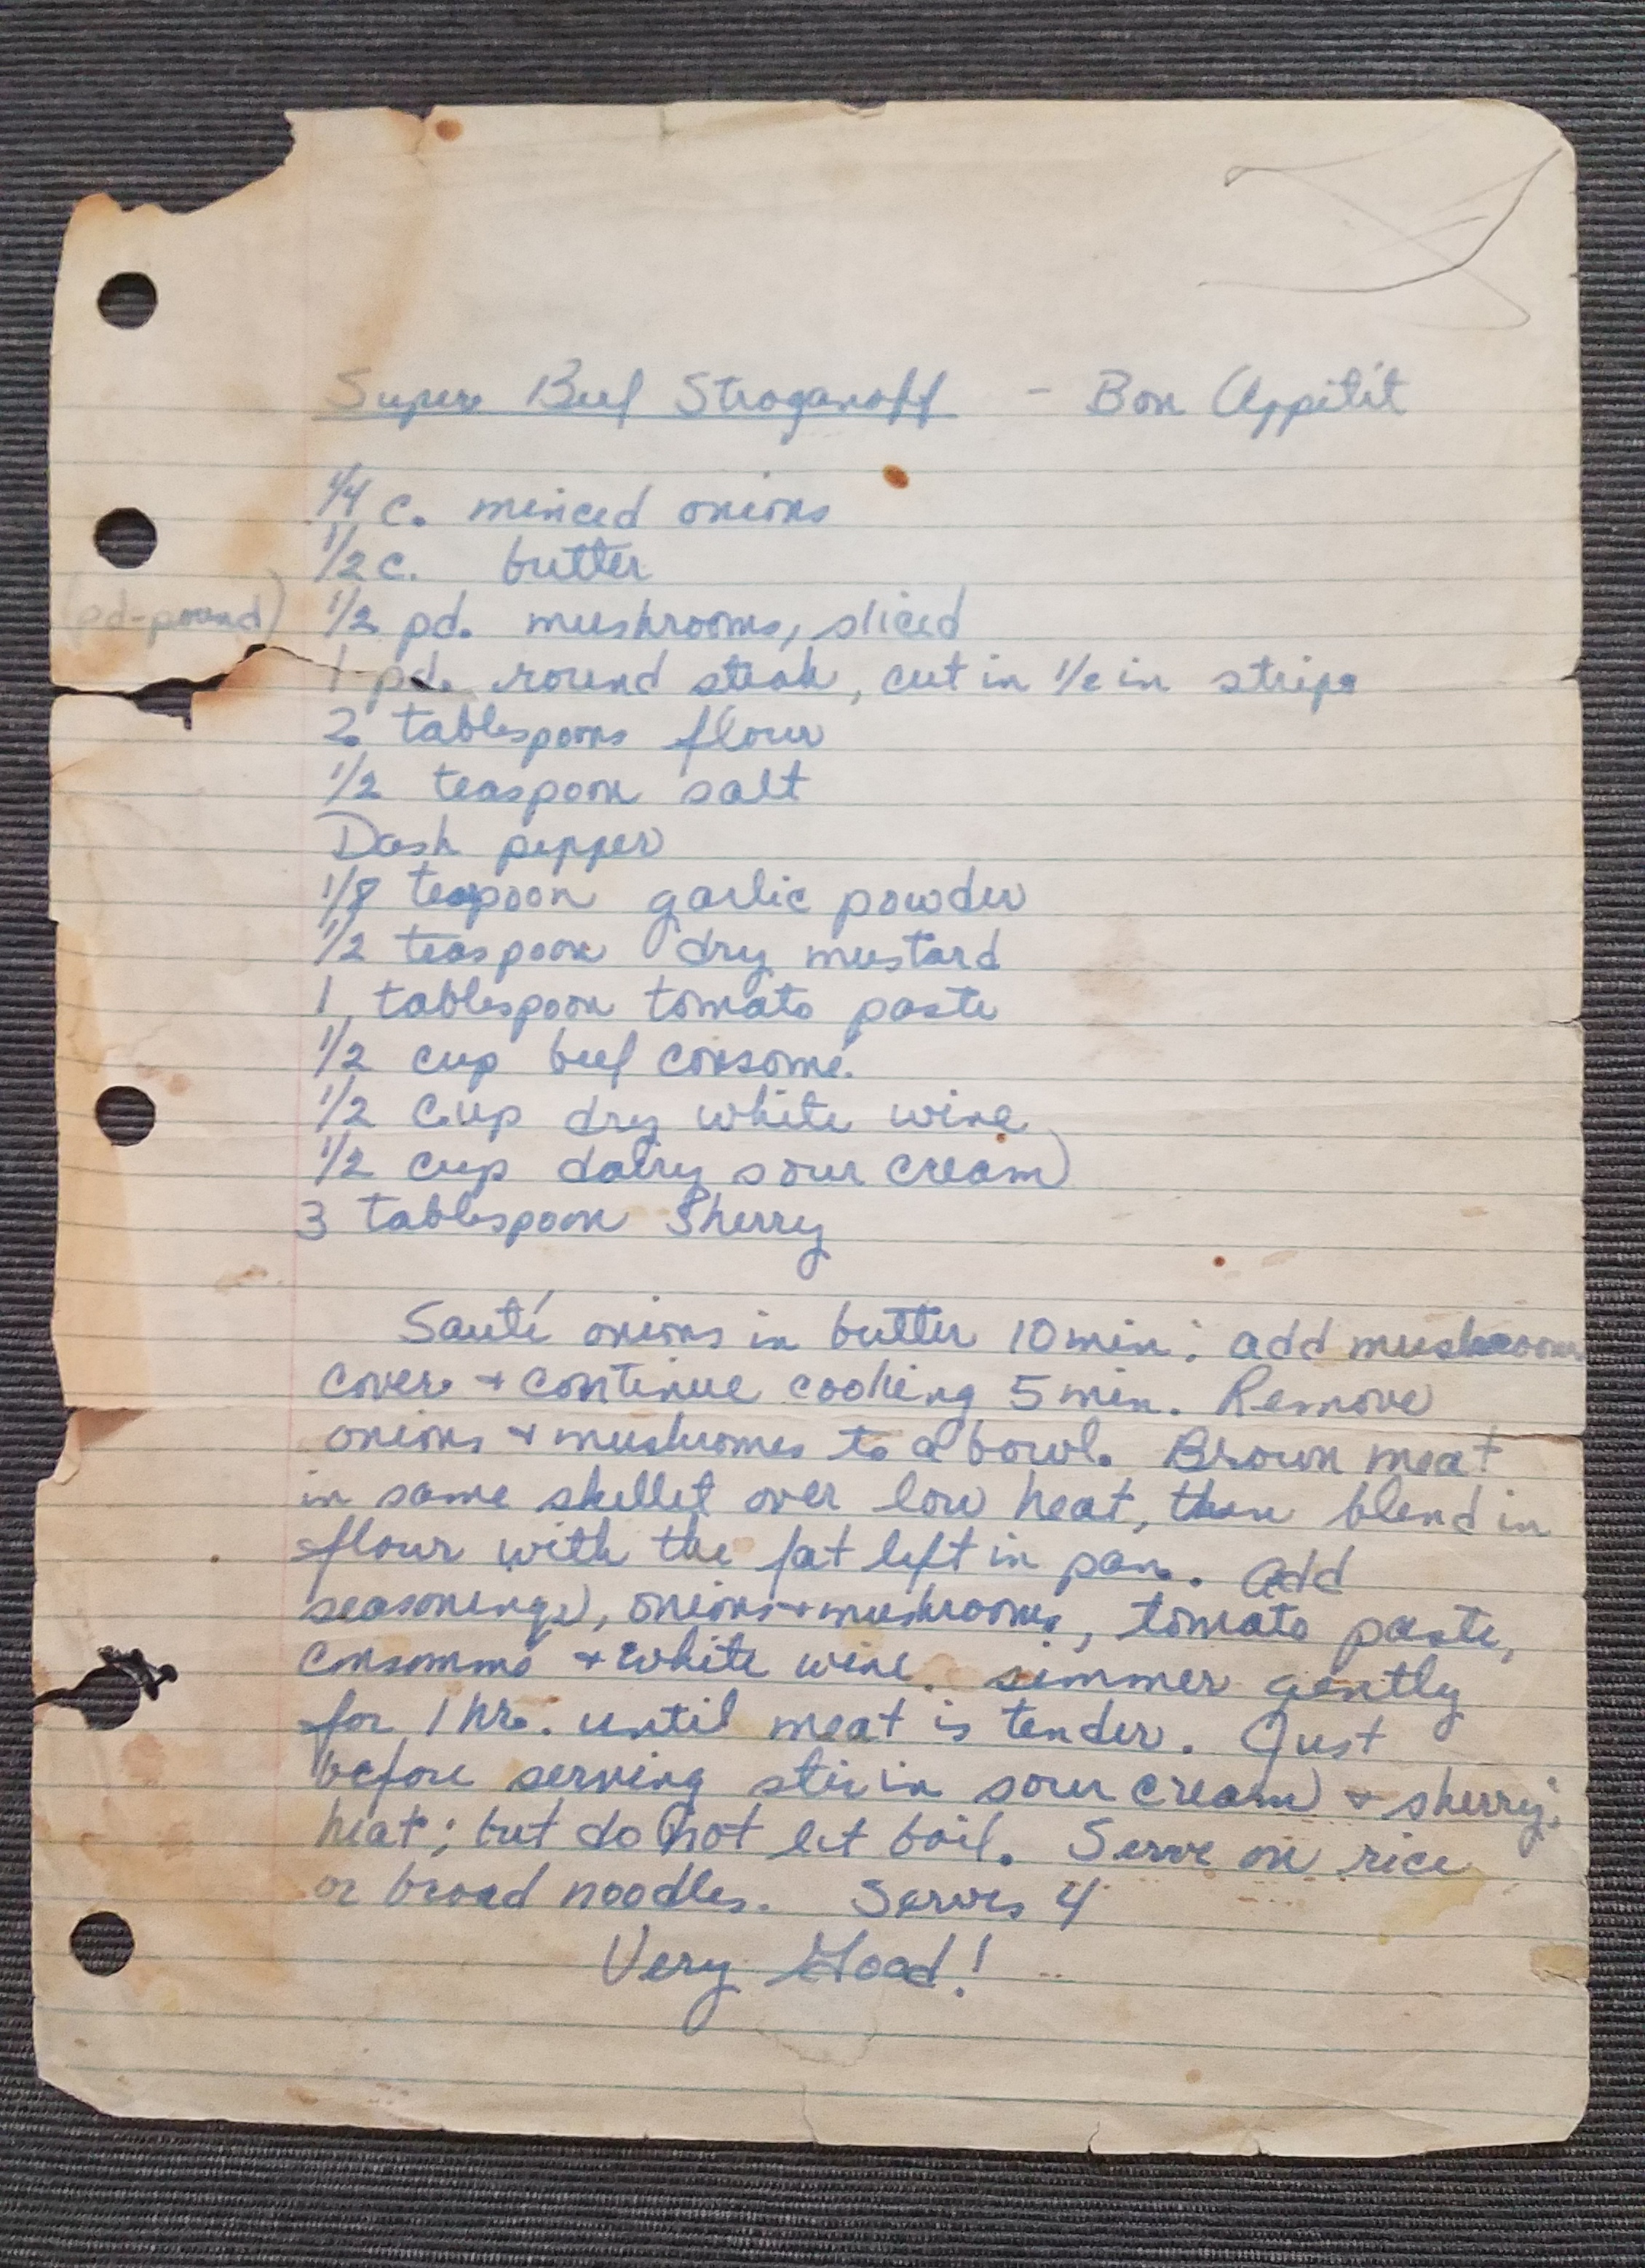 Super Beef Stroganoff - Bon Appétit
1/4 c. minced onions
1/2 c. butter
(pd-pound) 1/2 pd. mushrooms, sliced
1 pd. round steak, cut in 1/2 in strips
2 tablespoons flour
1/2 teaspoon salt
Dash pepper
1/8 teaspoon garlic powder
1/2 teaspoon dry mustard
1 tablespoon tomato paste
1/2 cup beef consomé
1/2 cup dry white wine
1/2 cup dairy sour cream
3 tablespoon Sherry
Sauté onions in butter 10 min; add mushrooms
cover + continue cooking 5 min. Remove
onions + mushromes to a bowl. Brown meat
in same skillet over low heat, then blend in
flour with the fat left in pan. Add
seasonings, onions + mushrooms, tomato paste,
consommé + white wine. simmer gently
for 1 hr. until meat is tender. Just
before serving stir in sour cream + sherry;
heat; but do not let boil. Serve on rice
or broad noodles. Serves 4
Very Good!